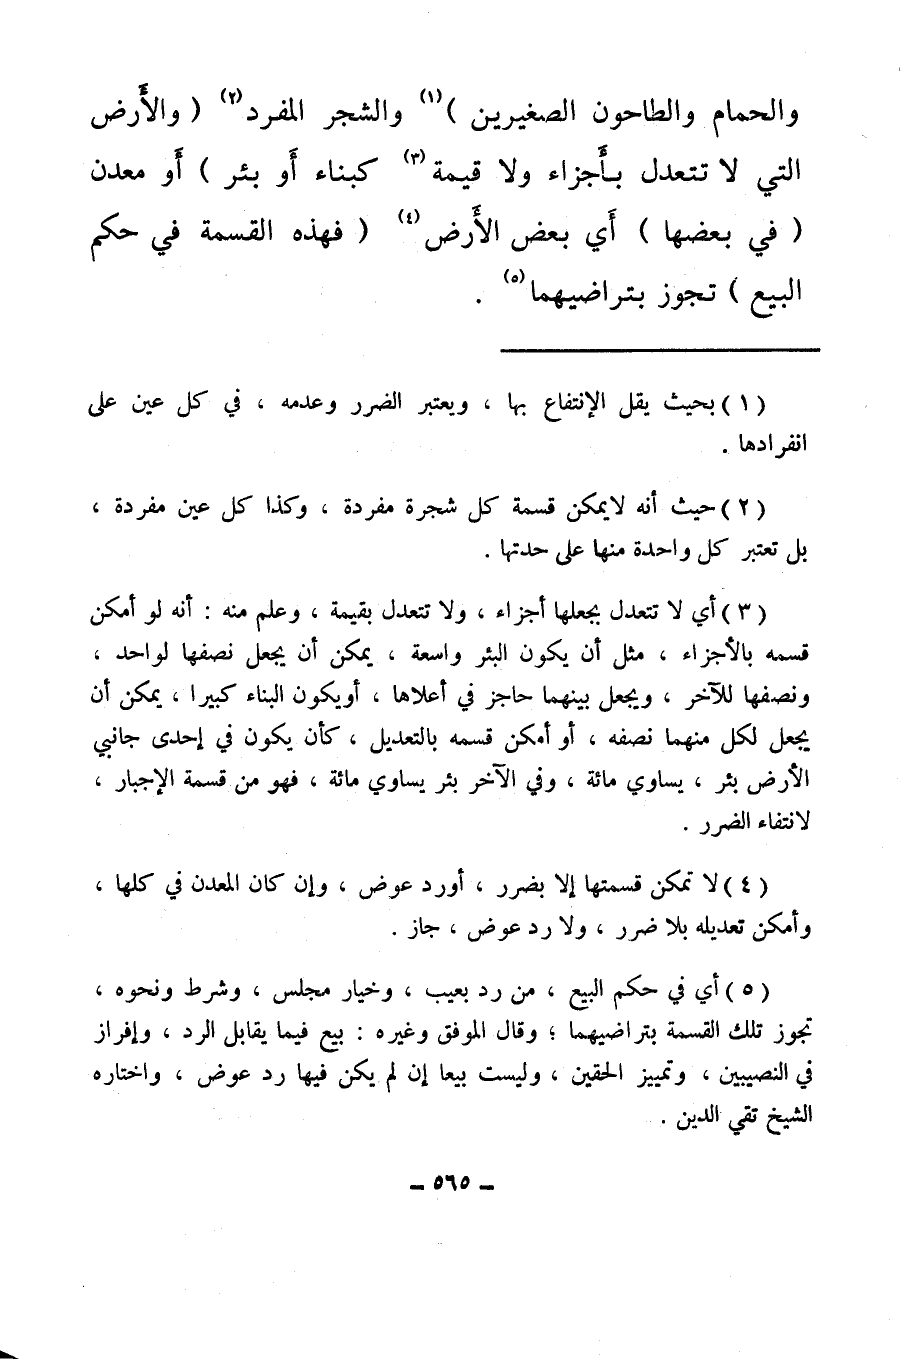 والحمام والطاحون الصغيرين )(١) والشجر المفرد(٢) ( والأَرض
التي لا تتعدل بأَجزاء ولا قيمة(٣) كبناء أَو بئر ) أَو معدن
( في بعضها ) أَي بعض الأَرض(٤) ( فهذه القسمة في حكم
البيع ) تجوز بتراضيهما(٥) .
( ١ ) بحيث يقل الإنتفاع بها ، ويعتبر الضرر وعدمه ، في كل عين على
انفرادها .
( ٢ ) حيث أنه لايمكن قسمة كل شجرة مفردة ، وكذا كل عين مفردة ،
بل تعتبر كل واحدة منها على حدتها .
( ٣ ) أي لا تتعدل بجعلها أجزاء ، ولا تتعدل بقيمة ، وعلم منه : أنه لو أمكن
قسمه بالأجزاء ، مثل أن يكون البئر واسعة ، يمكن أن يجعل نصفها لواحد ،
ونصفها للآخر ، ويجعل بينهما حاجز في أعلاها ، أويكون البناء كبيرا ، يمكن أن
يجعل لكل منهما نصفه ، أو أمكن قسمه بالتعديل ، كأن يكون في إحدى جانبي
الأرض بئر ، يساوي مائة ، وفي الآخر بئر يساوي مائة ، فهو من قسمة الإجبار ،
لانتفاء الضرر .
( ٤ ) لا تمكن قسمتها إلا بضرر ، أورد عوض ، وإن كان المعدن في كلها ،
وأمكن تعديله بلا ضرر ، ولا رد عوض ، جاز .
( ٥ ) أي في حكم البيع ، من رد بعيب ، وخيار مجلس ، وشرط ونحوه ،
تجوز تلك القسمة بتراضيهما ؛ وقال الموفق وغيره : بيع فيما يقابل الرد ، وإفراز
في النصيبين ، وتمييز الحقين ، وليست بيعا إن لم يكن فيها رد عوض ، واختاره
الشيخ تقي الدين .
ـ ٥٦٥ ـ